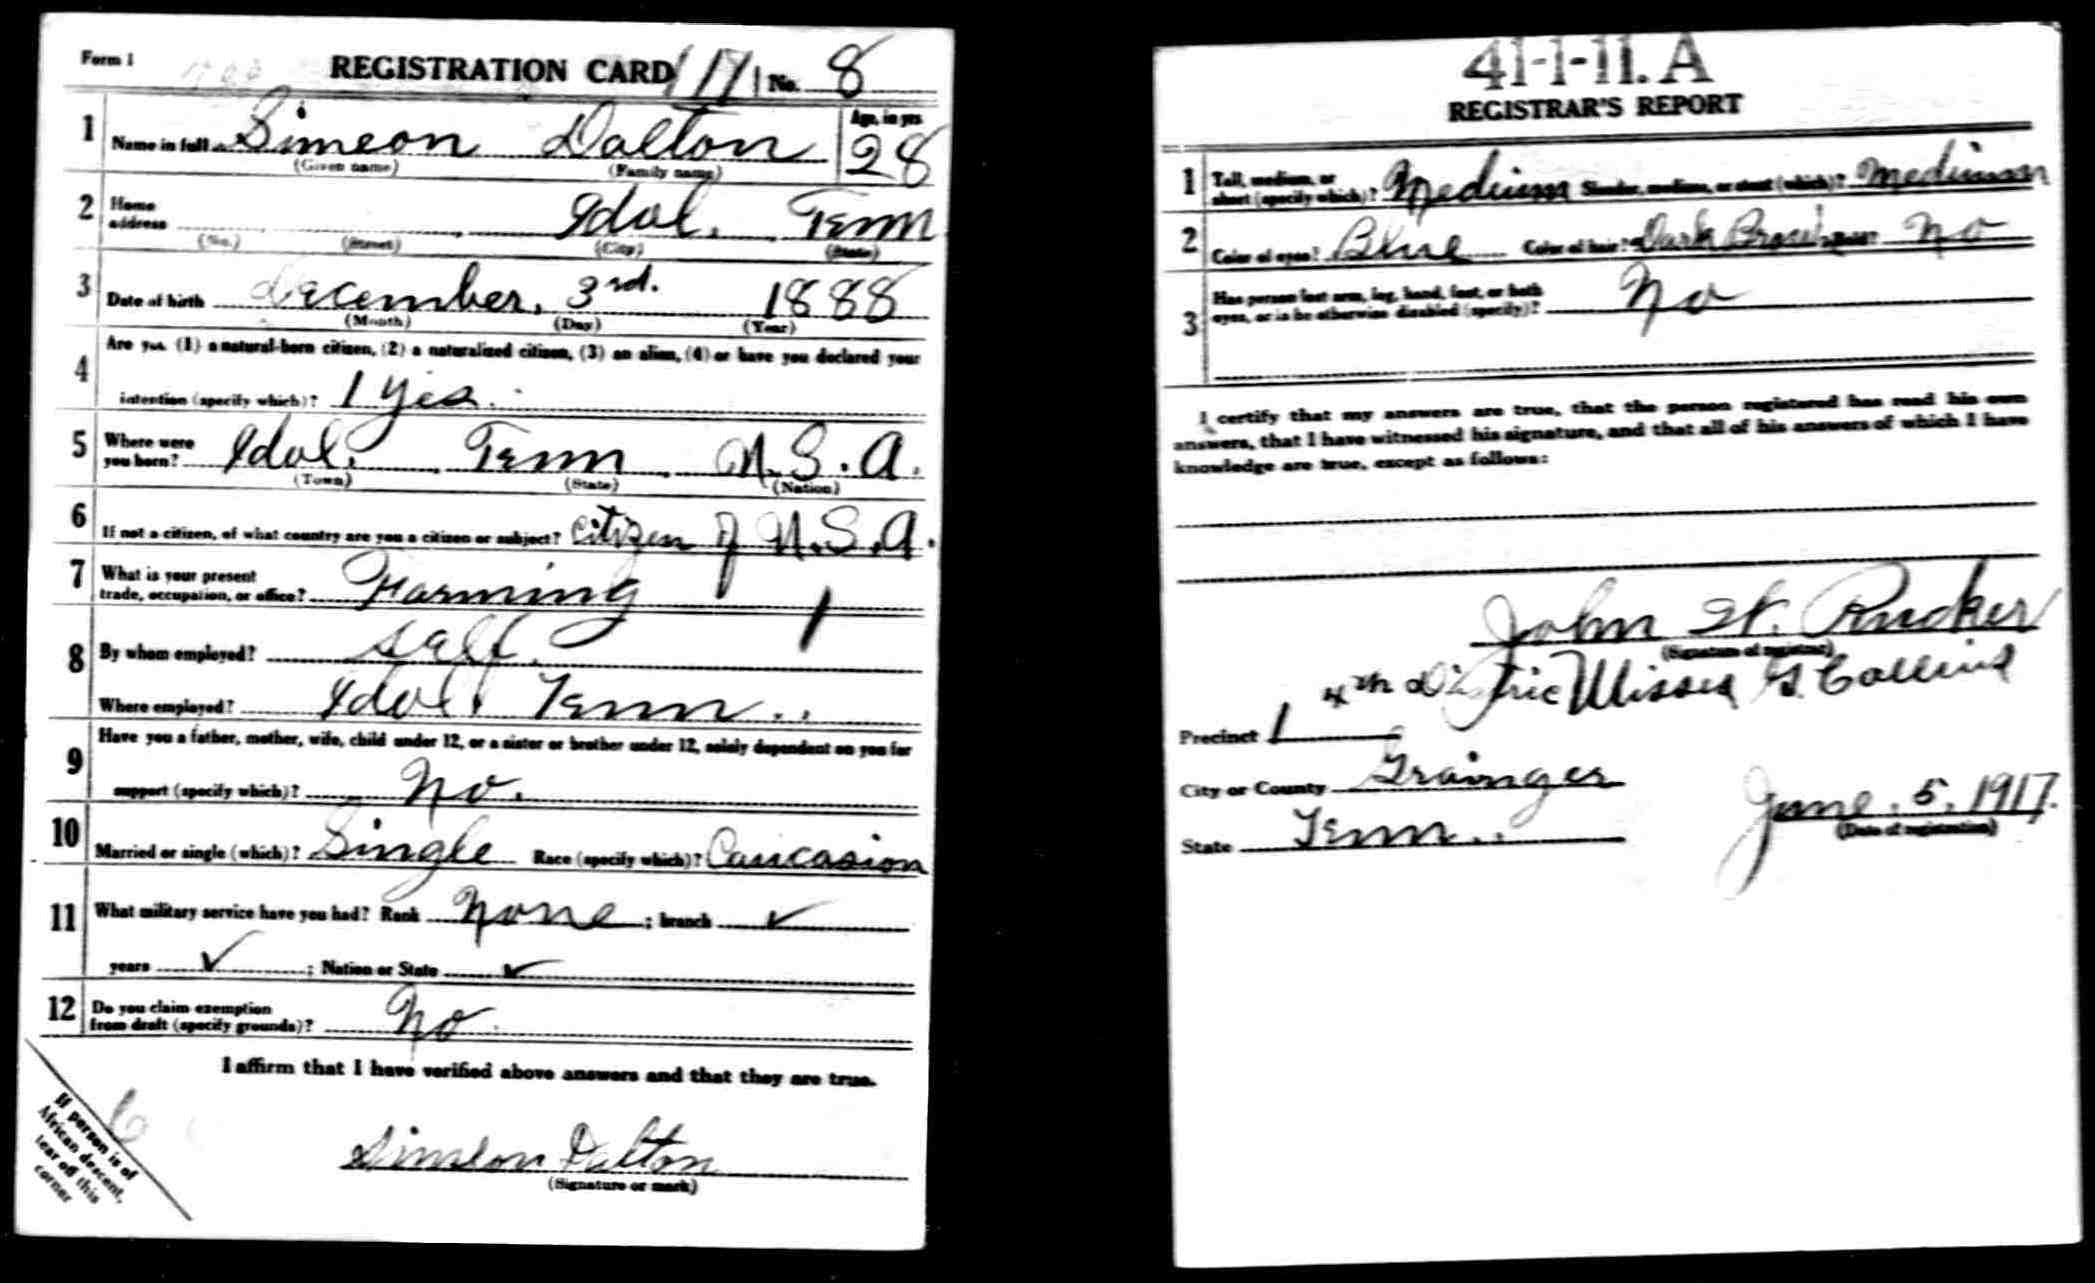 Form 1 REGISTRATION CARD No. 8
1 Name in full Simeon Dalton Age, in yrs 28
(Given name) (Family name)
2 Home address Idol, Tenn
(No.) (Street) (City) (State)
3 Date of birth December, 3rd. 1888
(Month) (Day) (Year)
4 Are you (1) a natural-born citizen, (2) a naturalized citizen, (3) an alien, (4) or have you declared your
intention (specify which)? 1 Yes.
5 Where were you born? Idol, Tenn U.S.A.
(Town) (State) (Nation)
6 If not a citizen, of what country are you a citizen or subject? Citizen of U.S.A.
7 What is your present
trade, occupation, or office? Farming
8 By whom employed? Self.
Where employed? Idol, Tenn..
9 Have you a father, mother, wife, child under 12, or a sister or brother under 12, solely dependent on you for
support (specify which)? No.
10 Married or single (which)? Single Race (specify which)? Caucasion
11 What military service have you had? Rank None; branch ✓
years ✓; Nation or State ✓
12 Do you claim exemption
from draft (specify grounds)? No
I affirm that I have verified above answers and that they are true.
Simeon Dalton
(Signature or mark)
If person is of
African descent,
tear off this
corner
41-1-11. A
REGISTRAR'S REPORT
1 Tall, medium, or
short (specify which)? Medium Slender, medium, or stout (which)? Medium
2 Color of eyes? Blue Color of hair? Dark Brown No
3 Has person lost arm, leg, hand, foot, or both
eyes, or is he otherwise disabled (specify)? No
I certify that my answers are true, that the person registered has read his own
answers, that I have witnessed his signature, and that all of his answers of which I have
knowledge are true, except as follows:
John W. Rucker
(Signature of registrar)
4th Ulisses G. Collins
Precinct 1
City or County Grainger
State Tenn..
June. 5, 1917.
(Date of registration)